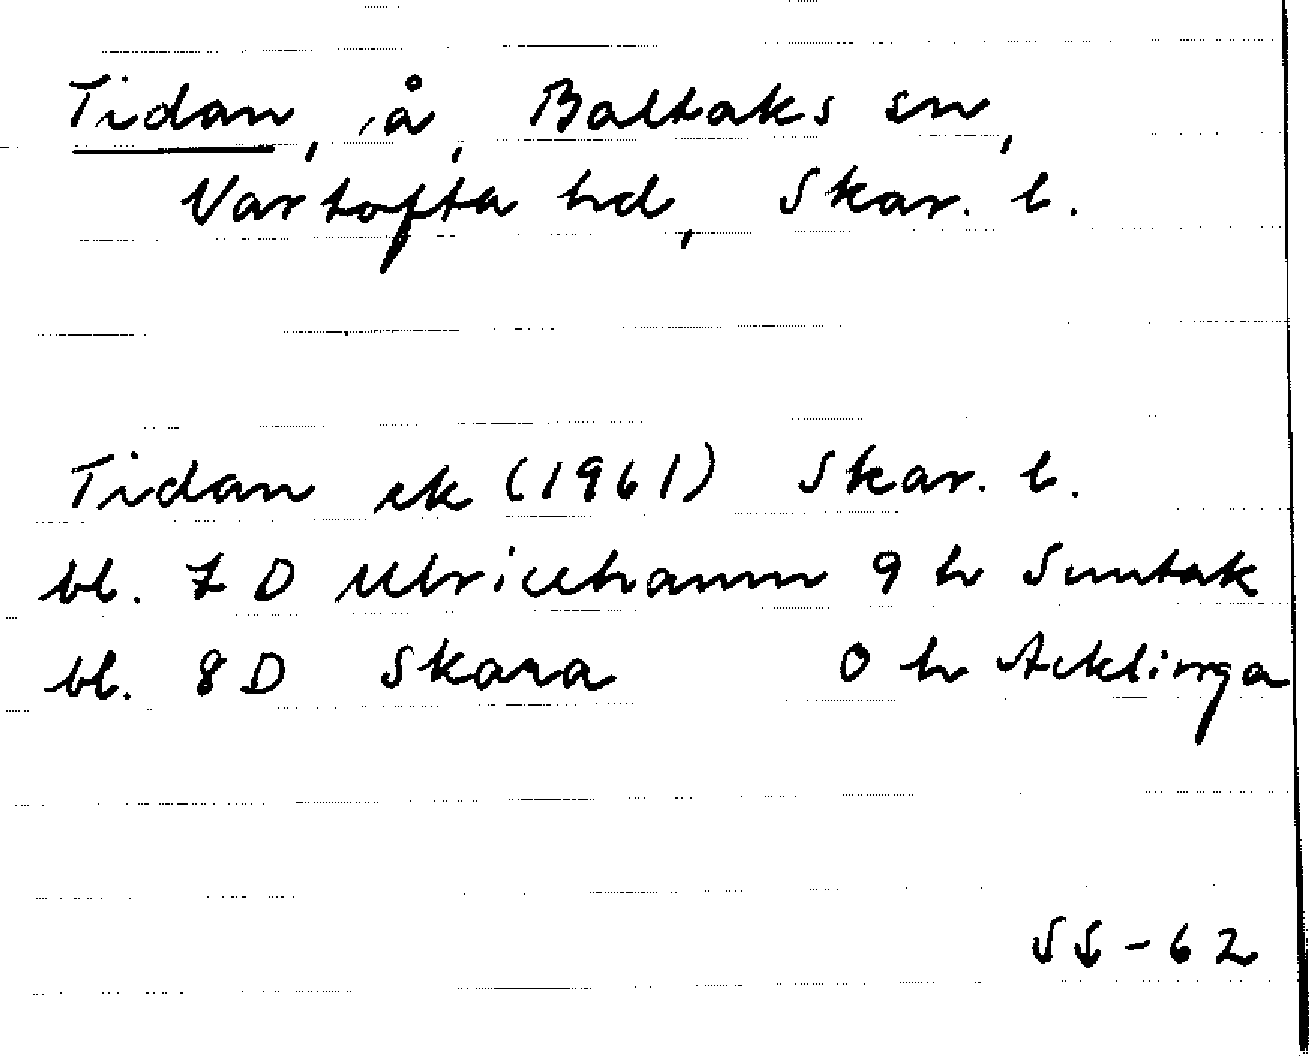 Tidan, å, Baltaks sn,
Vartofta hd, Skar. l.
Tidan ek (1961) Skar. l.
bl. 7 D Ulricehamn 9 h Suntak
bl. 8 D Skara 0 h Acklinga
SS-62